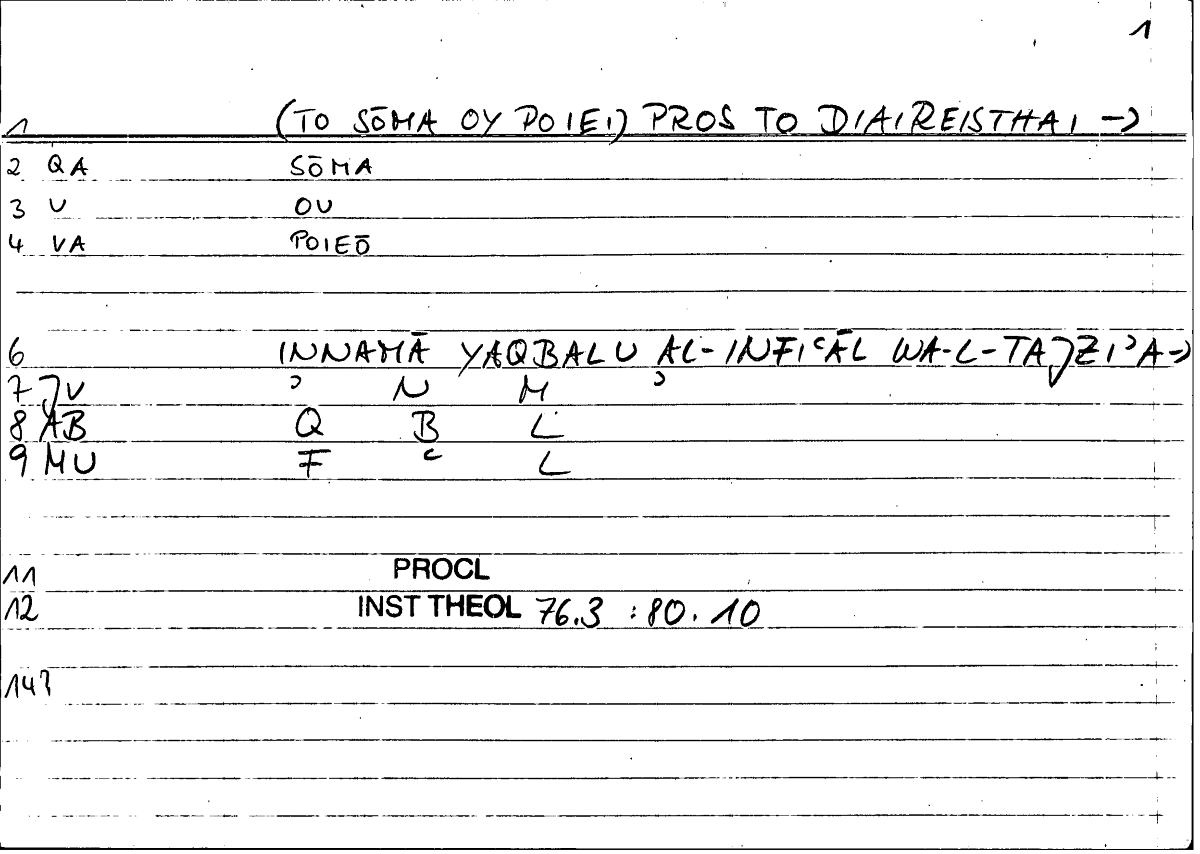 1
1 (TO SŌMA OY POIEI) PROS TO DIAIREISTHAI →
2 QA SŌMA
3 U OU
4 VA POIEŌ
6 INNAMĀ YAQBALU AL-INFIʿĀL WA-L-TAJZIʾA→
7 JV ʾ N M ʾ
8 AB Q B L
9 MU F ʿ L
11 PROCL
12 INST THEOL 76.3 :80.10
14?